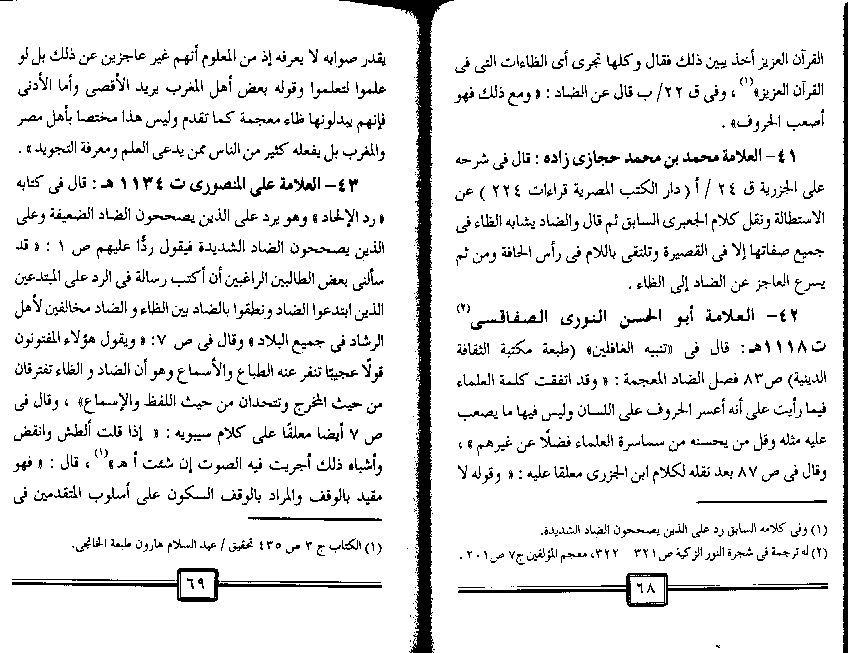 القرآن العزيز أخذ يبين ذلك فقال وكلها تجرى أى الظاءات التى فى
القرآن العزيز»(١) ، وفى ق ٢٢/ ب قال عن الضاد : « ومع ذلك فهو
أصعب الحروف» .
٤١- العلامة محمد بن محمد حجازى زاده : قال فى شرحه
على الجزرية ق ٢٤ / أ ( دار الكتب المصرية قراءات ٢٢٤ ) عن
الاستطالة ونقل كلام الجعبرى السابق ثم قال والضاد يشابه الظاء فى
جميع صفاتها إلا فى القصيرة وتلتقى باللام فى رأس الحافة ومن ثم
يسرع العاجز عن الضاد إلى الظاء .
٤٢- العلامة أبو الحسن النورى الصفاقسى(٢)
ت١١١٨هـ : قال فى «تنبيه الغافلين» (طبعة مكتبة الثقافة
الدينية) ص٨٣ فصل الضاد المعجمة : « وقد اتفقت كلمة العلماء
فيما رأيت على أنه أعسر الحروف على اللسان وليس فيها ما يصعب
عليه مثله وقل من يحسنه من سماسرة العلماء فضلًا عن غيرهم » ،
وقال فى ص ٨٧ بعد نقله لكلام ابن الجزرى معلقا عليه : « وقوله لا
(١) وفى كلامه السابق رد على الذين يصححون الضاد الشديدة.
(٢) له ترجمة فى شجرة النور الزكية ص٣٢١ ٣٢٢، معجم المؤلفين ج٧ ص٢٠١ .
٦٨
يقدر صوابه لا يعرفه إذ من المعلوم أنهم غير عاجزين عن ذلك بل لو
علموا لتعلموا وقوله بعض أهل المغرب يريد الأقصى وأما الأدنى
فإنهم يبدلونها ظاء معجمة كما تقدم وليس هذا مختصا بأهل مصر
والمغرب بل يفعله كثير من الناس ممن يدعى العلم ومعرفة التجويد » .
٤٣- العلامة على المنصورى ت ١١٣٤ هـ : قال فى كتابه
« رد الإلحاد » وهو يرد على الذين يصححون الضاد الضعيفة وعلى
الذين يصححون الضاد الشديدة فيقول ردًّا عليهم ص ١ : « قد
سألنى بعض الطالبين الراغبين أن أكتب رسالة فى الرد على المبتدعين
الذين ابتدعوا الضاد ونطقوا بالضاد بين الظاء و الضاد مخالفين لأهل
الرشاد فى جميع البلاد » وقال فى ص ٧: « ويقول هؤلاء المفتونون
قولًا عجيبًا تنفر عنه الطباع والأسماع وهو أن الضاد و الظاء تفترقان
من حيث المخرج وتتحدان من حيث اللفظ والإسماع» ، وقال فى
ص ٧ أيضا معلقًا على كلام سيبويه : « إذا قلت ألطش وانفض
وأشباه ذلك أجريت فيه الصوت إن شئت أ هـ»(١) ، قال : « فهو
مقيد بالوقف والمراد بالوقف السكون على أسلوب المتقدمين فى
(١) الكتاب ج ٣ ص ٤٣٥ تحقيق / عبد السلام هارون طبعة الخانجى.
٦٩